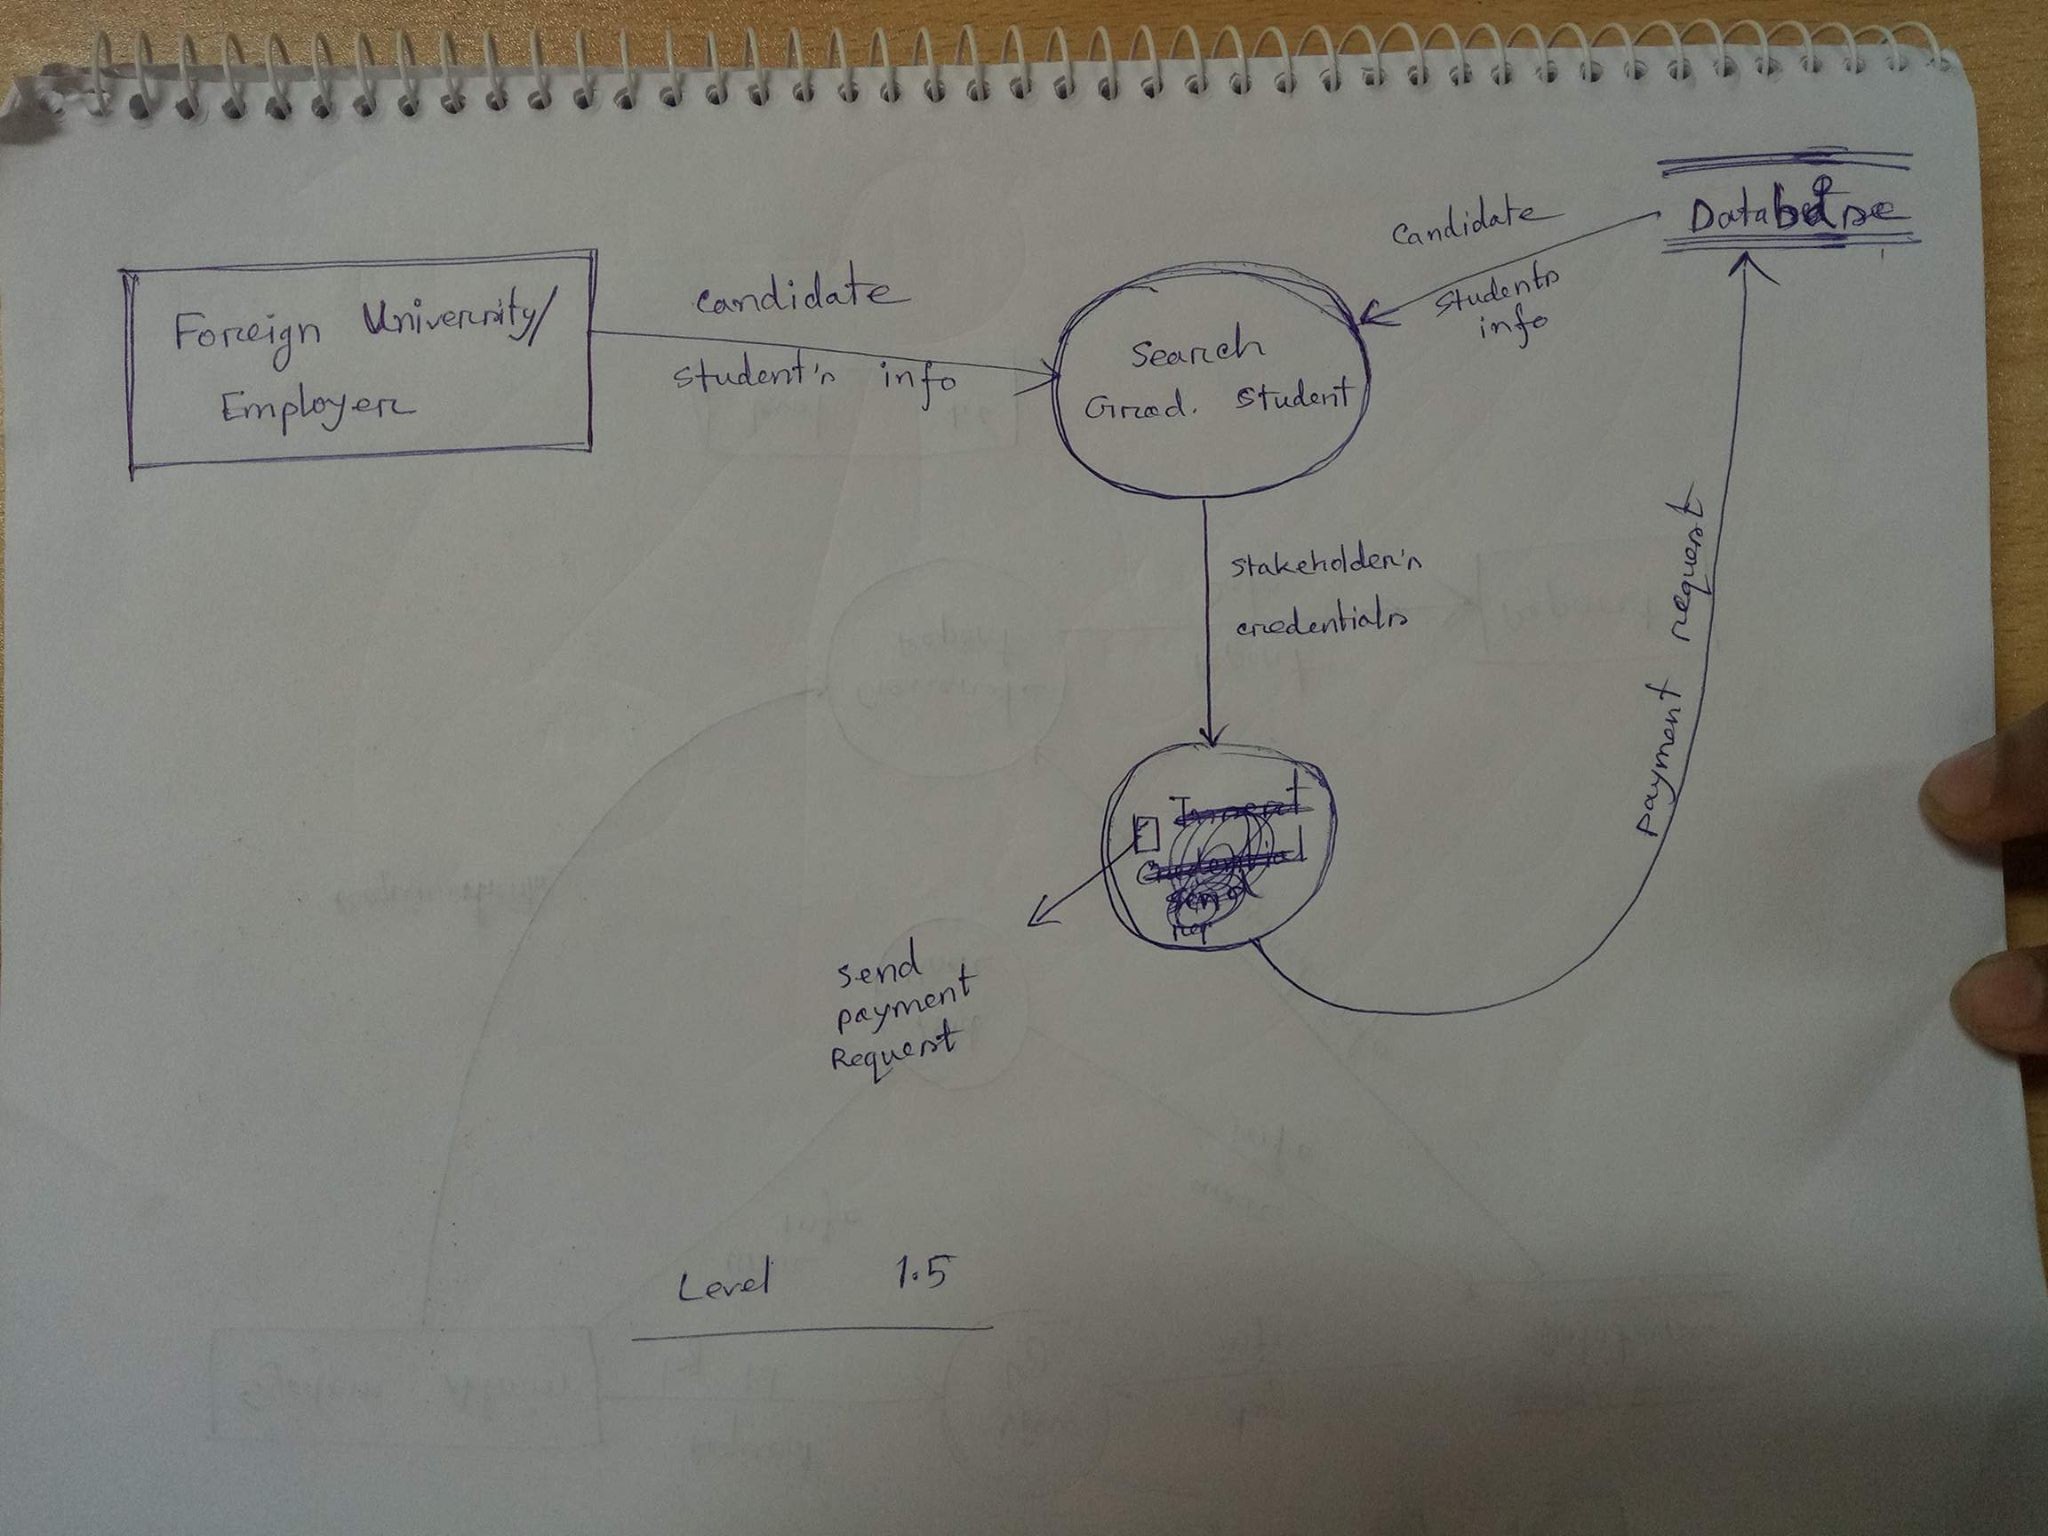 Foreign University/
Employer
Candidate
Student's info
Search
Grad. Student
Candidate
Students
info
Database
Stakeholder's
credentials
Send
payment
Request
payment request
Level 1.5